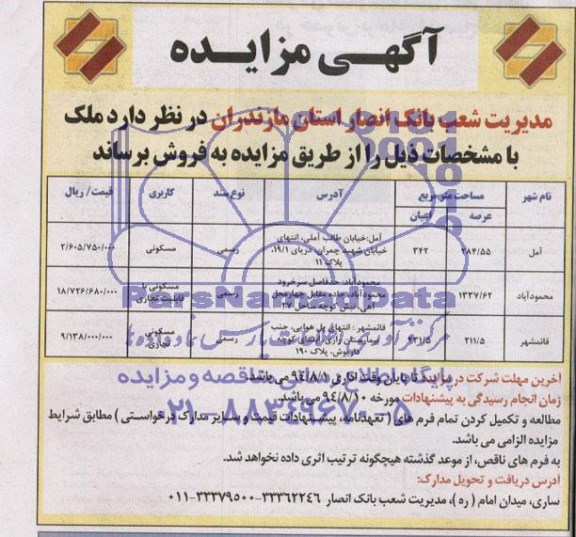 آگهی مزایده
مدیریت شعب بانک انصار استان مازندران در نظر دارد ملک
با مشخصات ذیل را از طریق مزایده به فروش برساند
نام شهر
مساحت متر مربع
عرصه
اعیان
آدرس
نوع سند
کاربری
قیمت/ ریال
آمل
۲۸۴/۵۵
۳۴۲
آمل:خیابان طالب آملی، انتهای
خیابان شهید چمران، دریای ۱۹/۱،
پلاک ۱۱
رسمی
مسکونی
۲/۶۰۵/۷۵۰/۰۰۰
محمودآباد
۱۳۳۷/۶۲
محمودآباد: حدفاصل سرخرود
محمودآباد، جاده مقابل چهار محل
آهی، نبش کوچه ساحل ۲۷
رسمی
مسکونی با
قابلیت تجاری
۱۸/۷۲۶/۶۸۰/۰۰۰
قائمشهر
۲۱۱/۵
۶۳۱/۵
قائمشهر: انتهای پل هوایی، جنب
بیمارستان رازی، ابتدای کوچه
داریوش، پلاک ۱۹۰
رسمی
مسکونی
تجاری
۹/۱۳۸/۰۰۰/۰۰۰
آخرین مهلت شرکت در مزایده تا پایان وقت اداری ۹۴/۸/۱۰ می باشد.
زمان انجام رسیدگی به پیشنهادات مورخه ۹۴/۸/۱۰ می باشد.
مطالعه و تکمیل کردن تمام فرم های ( تعهدنامه، پیشنهادات قیمت و سایر مدارک درخواستی ) مطابق شرایط
مزایده الزامی می باشد.
به فرم های ناقص، از موعد گذشته هیچگونه ترتیب اثری داده نخواهد شد.
آدرس دریافت و تحویل مدارک:
ساری، میدان امام ( ره )، مدیریت شعب بانک انصار ۳۳۳۶۲۲۴۶-۳۳۳۷۹۵۰۰-۰۱۱
ParsNamadData
۰۲۱-۸۸۳۴۹۶۷۰-۵